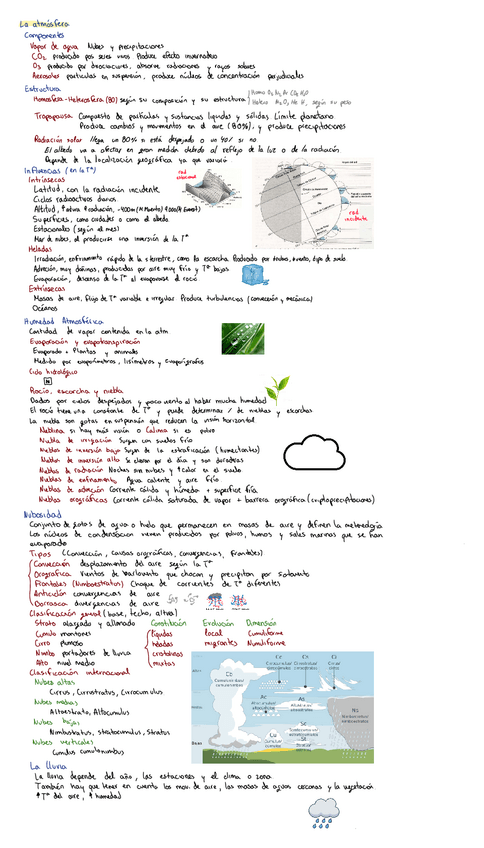 La atmósfera
Componentes
Vapor de agua Nubes y precipitaciones
CO₂ producido por seres vivos. Produce efecto invernadero
O₃ producido por disociaciones, absorve radiaciones y rayos solares
Aerosoles partículas en suspensión, produce núcleos de concentración perjudiciales
Estructura
Homosfera-Heterosfera (80) según su composición y su estructura
Homo O₂ N₂ Ar CO₂ H₂O
Hetero N₂ O₂ He H, según su peso
Tropopausa Compuesto de partículas y sustancias líquidas y sólidas Límite planetario
Produce cambios y movimientos en el aire (80%), y produce precipitaciones
Radiación solar llega un 80% si está despejado o un 40% si no
El albedo va a afectar en gran medida debido al reflejo de la luz o de la radiación.
Depende de la localización geográfica ya que varía
Influencias (en la Tª)
Intrínsecas
Latitud, con la radiación incidente
Ciclos radioactivos diarios
Altitud, ↑altura ↑radiación,
Superficies, como ciudades o como el albedo
Estacionales (según el mes)
Mar de nubes, al producirse una inversión de la Tª
rad estacional
rad incidente
Heladas
Irradiación, enfriamiento rápido de la s. terrestre, como la escarcha. Producido por viento, tipo de suelo
Advección, muy dañinas, producidas por aire muy frío y Tª bajas
Evaporación, descenso de la Tª al evaporarse el rocío
Extrínsecas
Masas de aire, flujo de Tª variable e irregular. Produce turbulencias (convección y mecánica)
Océanos
Humedad Atmosférica
Cantidad de vapor contenida en la atm.
Evaporación y evapotranspiración
Evaporado + Plantas y animales
Medido por evaporímetros, lisímetros y evaporígrafos
Ciclo hidrológico
N
Rocío, escarcha y niebla
Dados por cielos despejados y poco viento al haber mucha humedad
El rocío tiene una constante de Tª y puede determinar / de nieblas y escarchas
La niebla son gotas en suspensión que reducen la visión horizontal
Neblina si hay más visión o Calima si es polvo
Niebla de irrigación Surgen con suelos frío
Nieblas de inversión baja Surgen de la estratificación (humectantes)
Nieblas de inversión alta Se clarean por el día y son duraderas
Nieblas de radiación Noches sin nubes y ↑calor en el suelo
Nieblas de enfriamiento Agua caliente y aire frío
Nieblas de advección Corriente cálida y húmeda + superficie fría
Nieblas orográficas Corriente cálida saturada de vapor + barrera orográfica (criptoprecipitaciones)
Nubosidad
Conjunto de gotas de agua o hielo que permanecen en masas de aire y definen la meteorología
Los núcleos de condensación vienen producidos por polvos, humos y sales marinas que se han evaporado
Tipos (Convección, causas orográficas, convergencias, frontales)
Convección desplazamiento del aire según la Tª
Orográfica Vientos de barlovento que chocan y precipitan por Sotavento
Frontales (Nimboestratos) Choque de corrientes de Tª diferentes
Anticiclón convergencias de aire
Borrasca divergencias de aire
Clasificación general (base, techo, altura)
Strato alargado y allanado
Cumulo montones
Cirro plumoso
Nimbo portadores de lluvia
Alto nivel medio
Constitución
líquidas
heladas
cristalinas
mixtas
Evolución
local
migrantes
Dimensión
Cumuliforme
Nimbiforme
Clasificación internacional
Nubes altas
Cirrus, Cirrostratus, Cirrocumulus
Nubes medias
Altostrato, Altocumulus
Nubes bajas
Nimbustratus, stratocumulus, Stratus
Nubes verticales
Cumulus cumulonimbus
Cb
Cc
Cs
Ci
Ac
As
Ns
Cu
Sc
St
La lluvia
La lluvia depende del año, las estaciones y el clima o zona
También hay que tener en cuenta los mov. de aire, las masas de aguas cercanas y la vegetación
↑Tª del aire, ↑humedad